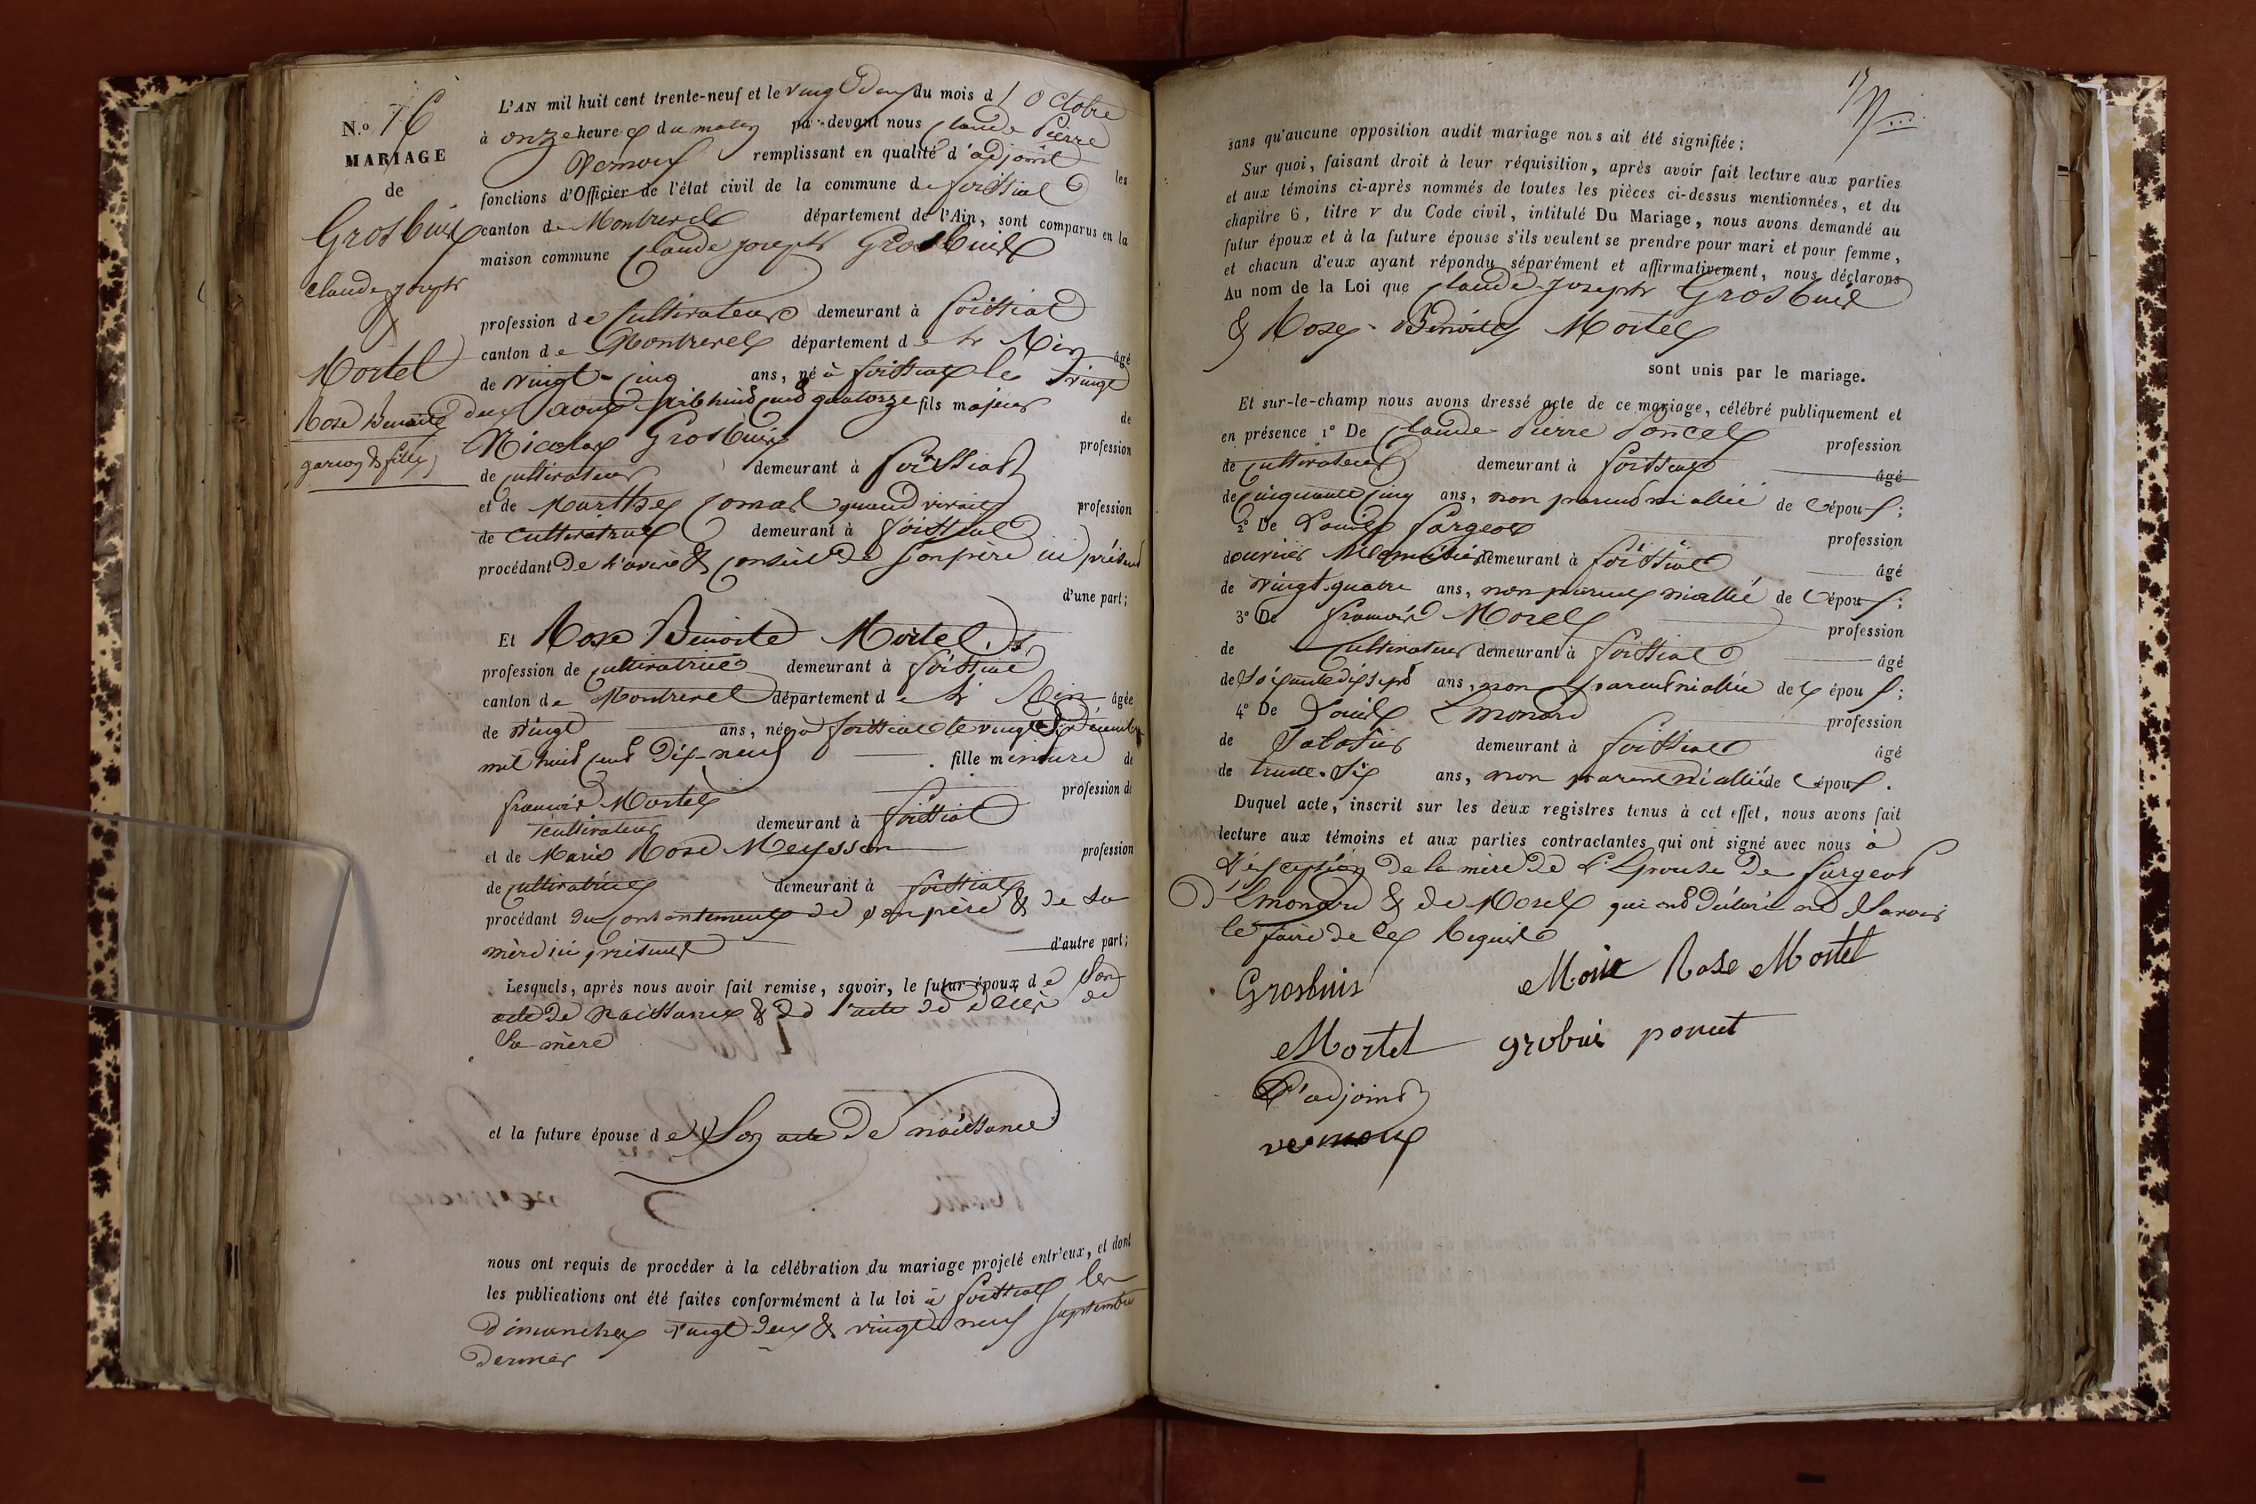 N.o 16
MARIAGE
de
Grosbuis
Claude joseph
&
Mortel
Rose Benoite
garçon & fille
L'AN mil huit cent trente-neuf et le vingt deux du mois d'Octobre
à onze heures du matin par-devant nous Claude Pierre
Vernoux remplissant en qualité d'adjoint les
fonctions d'Officier de l'état civil de la commune de foissiat
canton de Montrevel département de l'Ain, sont comparus en la
maison commune Claude joseph Grosbuis
profession de Cultivateur demeurant à foissiat
canton de Montrevel département de l'Ain âgé
de vingt-cinq ans, né à foissiat le vingt
deux aout mil huit cent quatorze fils majeur de
Nicolas Grosbuis profession
de cultivateur demeurant à foissiat
et de Marthe quand vivait profession
de cultivatrice demeurant à foissiat
procédant de l'avis & conseil de son père ici présent
d'une part;
Et Rose Benoite Mortel
profession de cultivatrice demeurant à foissiat
canton de Montrevel département de l'Ain âgée
de vingt ans, née à foissiat le vingt décembre
mil huit cent dix-neuf fille mineure de
françois Mortel profession de
cultivateur demeurant à foissiat
et de Marie Rose Meysson profession
de cultivatrice demeurant à foissiat
procédant du consentement de son père & de sa
mère ici présents d'autre part;
Lesquels, après nous avoir fait remise, savoir, le futur époux de son
acte de naissance & de l'acte de décès de
Sa mère
et la future épouse de Son acte de naissance
nous ont requis de procéder à la célébration du mariage projeté entr'eux, et dont
les publications ont été faites conformément à la loi à foissiat les
dimanches vingt deux & vingt neuf septembre
dernier
sans qu'aucune opposition audit mariage nous ait été signifiée;
Sur quoi, faisant droit à leur réquisition, après avoir fait lecture aux parties
et aux témoins ci-après nommés de toutes les pièces ci-dessus mentionnées, et du
chapitre 6, titre v du Code civil, intitulé Du Mariage, nous avons demandé au
futur époux et à la future épouse s'ils veulent se prendre pour mari et pour femme,
et chacun d'eux ayant répondu séparément et affirmativement, nous déclarons
Au nom de la Loi que Claude Joseph Grosbuis
& Rose Benoite Mortel
sont unis par le mariage.
Et sur-le-champ nous avons dressé acte de ce mariage, célébré publiquement et
en présence 1° De Claude Pierre Poncet profession
de cultivateur demeurant à foissiat âgé
de cinquante cinq ans, non parent ni allié de l'époux;
2° De Louis fargeot profession
d'ouvrier Menuisier demeurant à foissiat âgé
de vingt quatre ans, non parent ni allié de l'époux;
3° De françois Morel profession
de Cultivateur demeurant à foissiat âgé
de Soixante dix sept ans, non parent ni allié des époux;
4° De Louis Emonard profession
de Sabotier demeurant à foissiat âgé
de trente-six ans, non parent ni allié de l'époux.
Duquel acte, inscrit sur les deux registres tenus à cet effet, nous avons fait
lecture aux témoins et aux parties contractantes qui ont signé avec nous à
l'exception de la mère de l'Epouse de fargeot
d'Emonard & de Morel qui ont déclaré ne Savoir
le faire de ce Requis
Grosbuis Marie Rose Mortel
Mortel grobui poncet
L'adjoint
vernoux